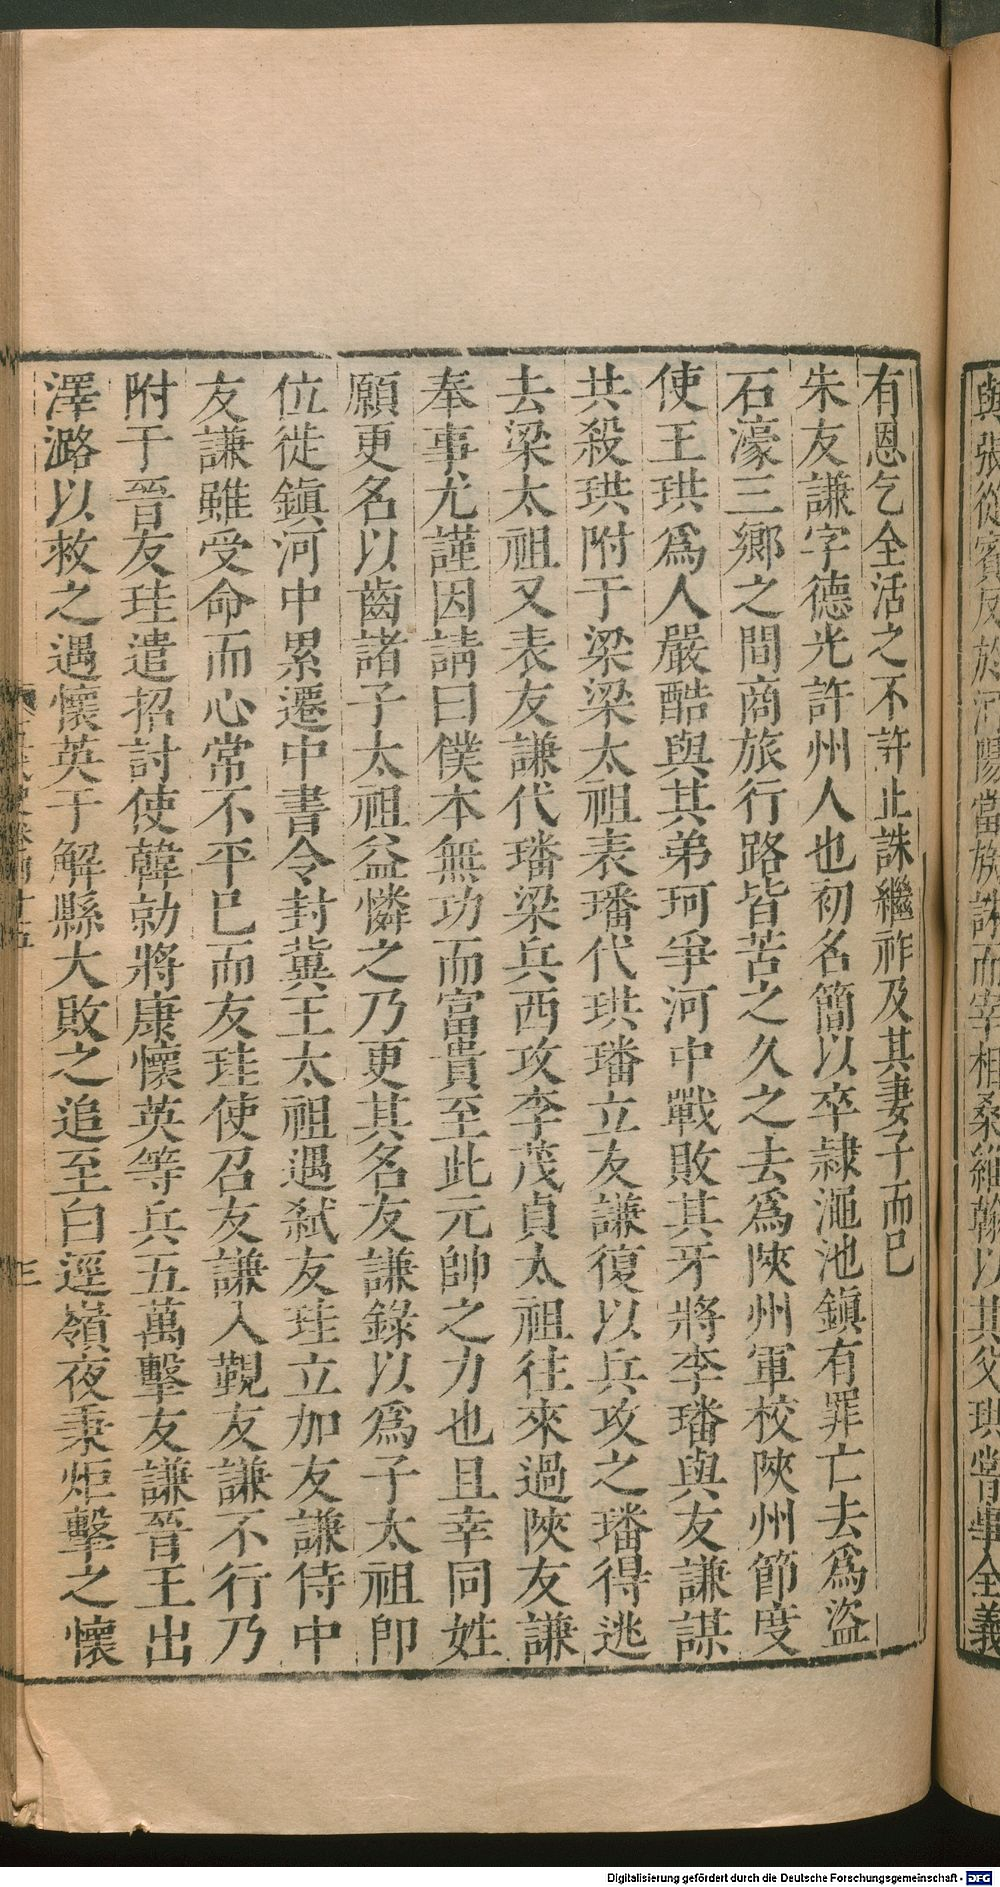 與張從賓反於河陽當族誅而宰相桑維翰以其父珙嘗事全義
有恩乞全活之不許止誅繼祚及其妻子而已
朱友謙字德光許州人也初名簡以卒隷澠池鎭有罪亡去爲盜
石濠三鄉之間商旅行路皆苦之久之去爲陝州軍校陝州節度
使王珙爲人嚴酷與其弟珂爭河中戰敗其牙將李璠與友謙謀
共殺珙附于梁梁太祖表璠代珙璠立友謙復以兵攻之璠得逃
去梁太祖又表友謙代璠梁兵西攻李茂貞太祖往來過陝友謙
奉事尤謹因請曰僕本無功而富貴至此元帥之力也且幸同姓
願更名以齒諸子太祖益憐之乃更其名友謙錄以爲子太祖卽
位徙鎭河中累遷中書令封冀王太祖遇弑友珪立加友謙侍中
友謙雖受命而心常不平已而友珪使召友謙入覲友謙不行乃
附于晉友珪遣招討使韓勍將康懷英等兵五萬擊友謙晉王出
澤潞以救之遇懷英于解縣大敗之追至白逕嶺夜秉炬擊之懷
三
Digitalisierung gefördert durch die Deutsche Forschungsgemeinschaft - DFG